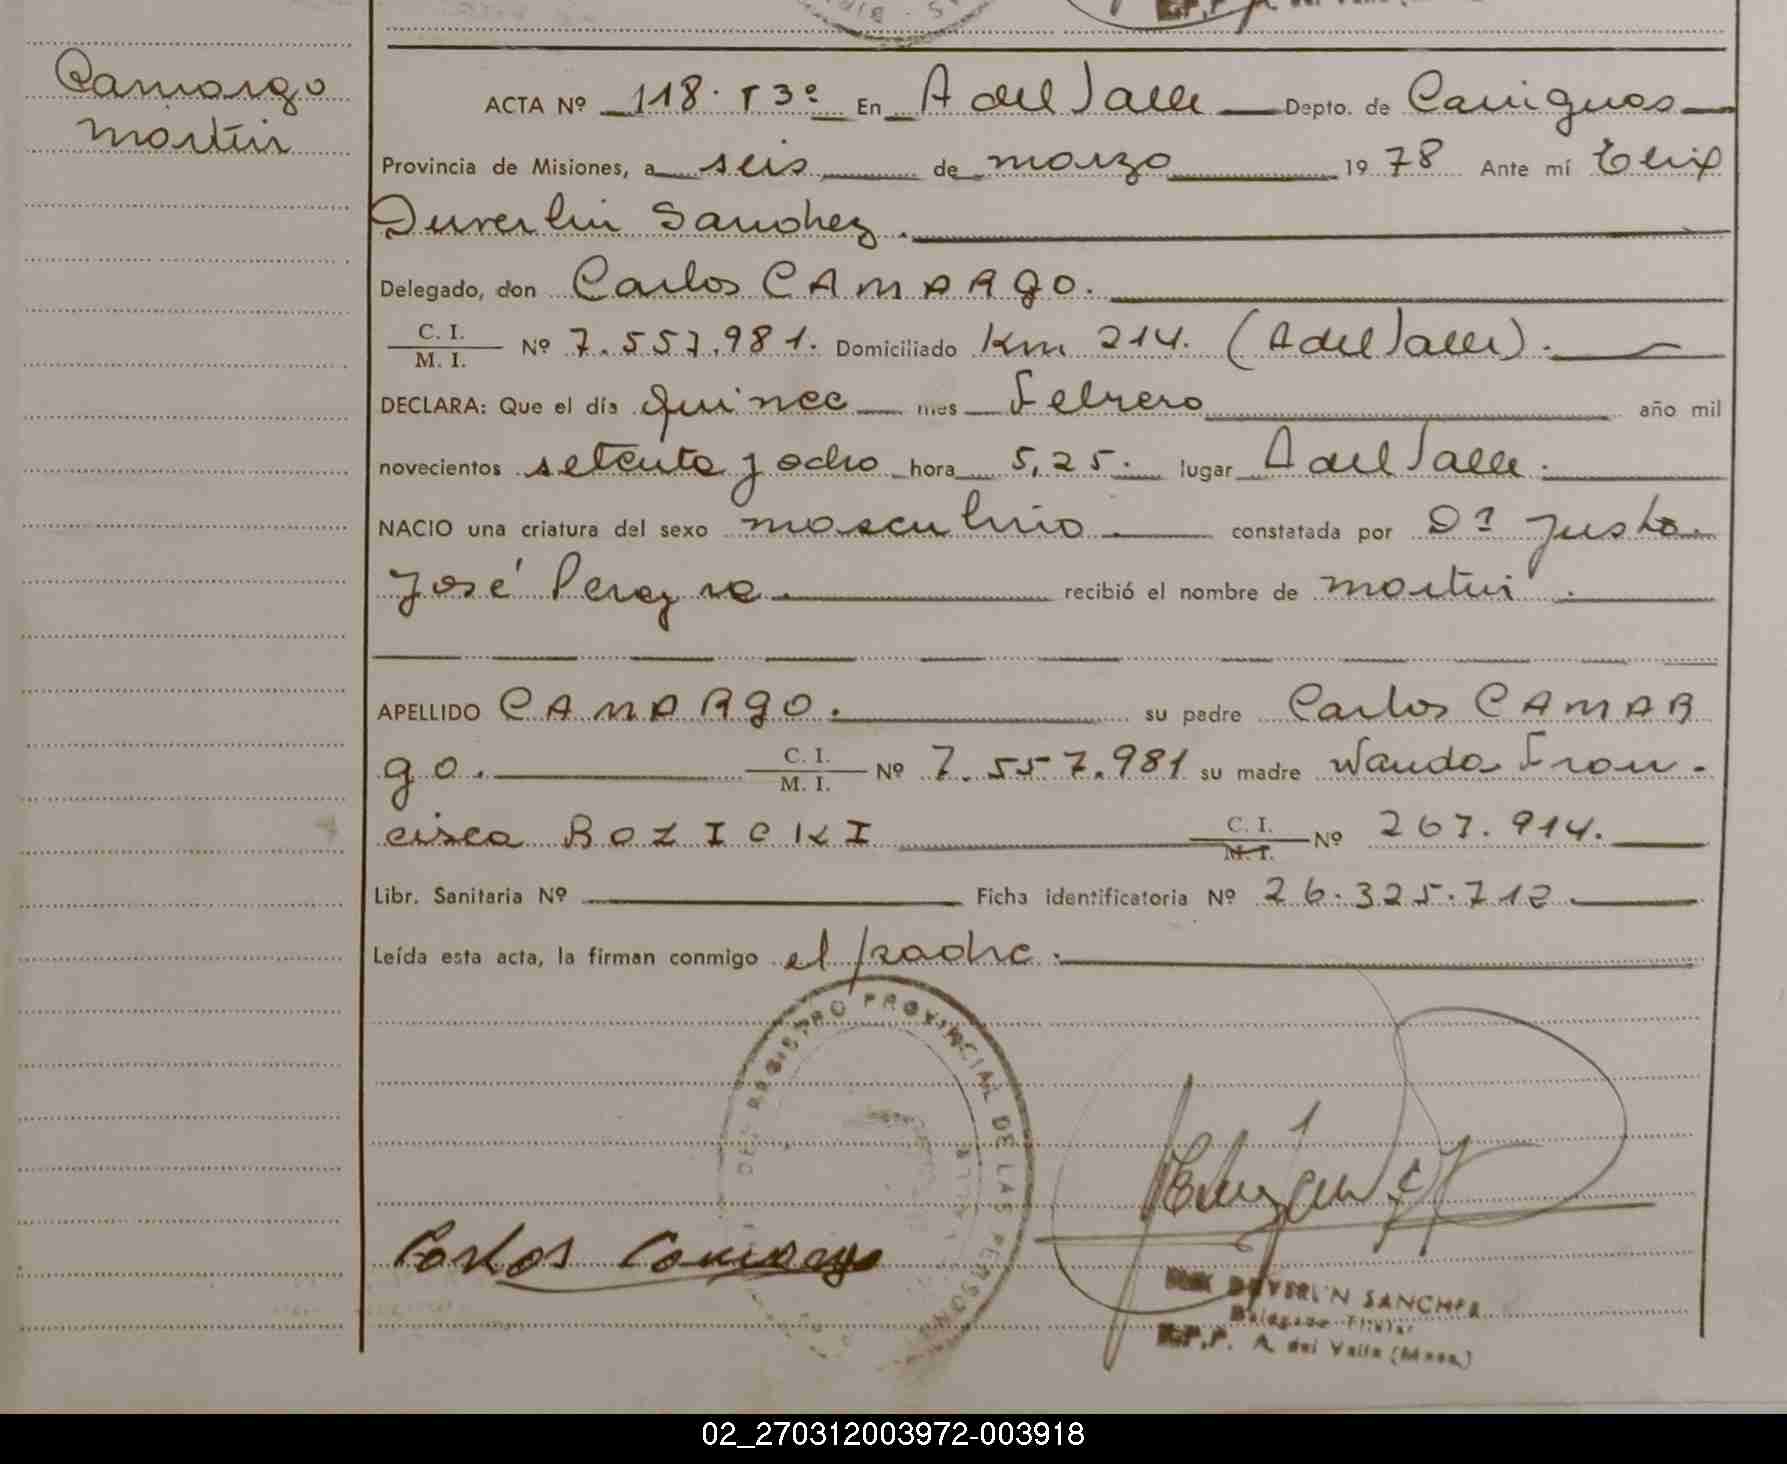 Camargo
Martin
ACTA Nº 118. T3º En A del Valle Depto. de Cainguas
Provincia de Misiones, a seis de marzo 1978 Ante mí Elix
Duverlin Sanchez.
Delegado, don Carlos CAMARgo.
C. I.
M. I. Nº 7.557.981. Domiciliado Km 214. (A del Valle).
DECLARA: Que el día quince mes Febrero año mil
novecientos setenta y ocho hora 5,25. lugar A del Valle.
NACIO una criatura del sexo masculino constatada por Dª Justa
José Pereyra. recibió el nombre de Martin.
APELLIDO CAMARgo. su padre Carlos CAMAR
go. C. I.
M. I. Nº 7.557.981 su madre Wanda Fran-
cisca BOZICKI C. I.
M. I. Nº 267.914.
Libr. Sanitaria Nº Ficha identificatoria Nº 26.325.712
Leída esta acta, la firman conmigo el padre.
REGISTRO PROVINCIAL DE LAS PERSONAS
Carlos Camargo
DUVERLIN SANCHEZ
Delegado Titular
R.P.P. A. del Valle (Mnes.)
02_270312003972-003918